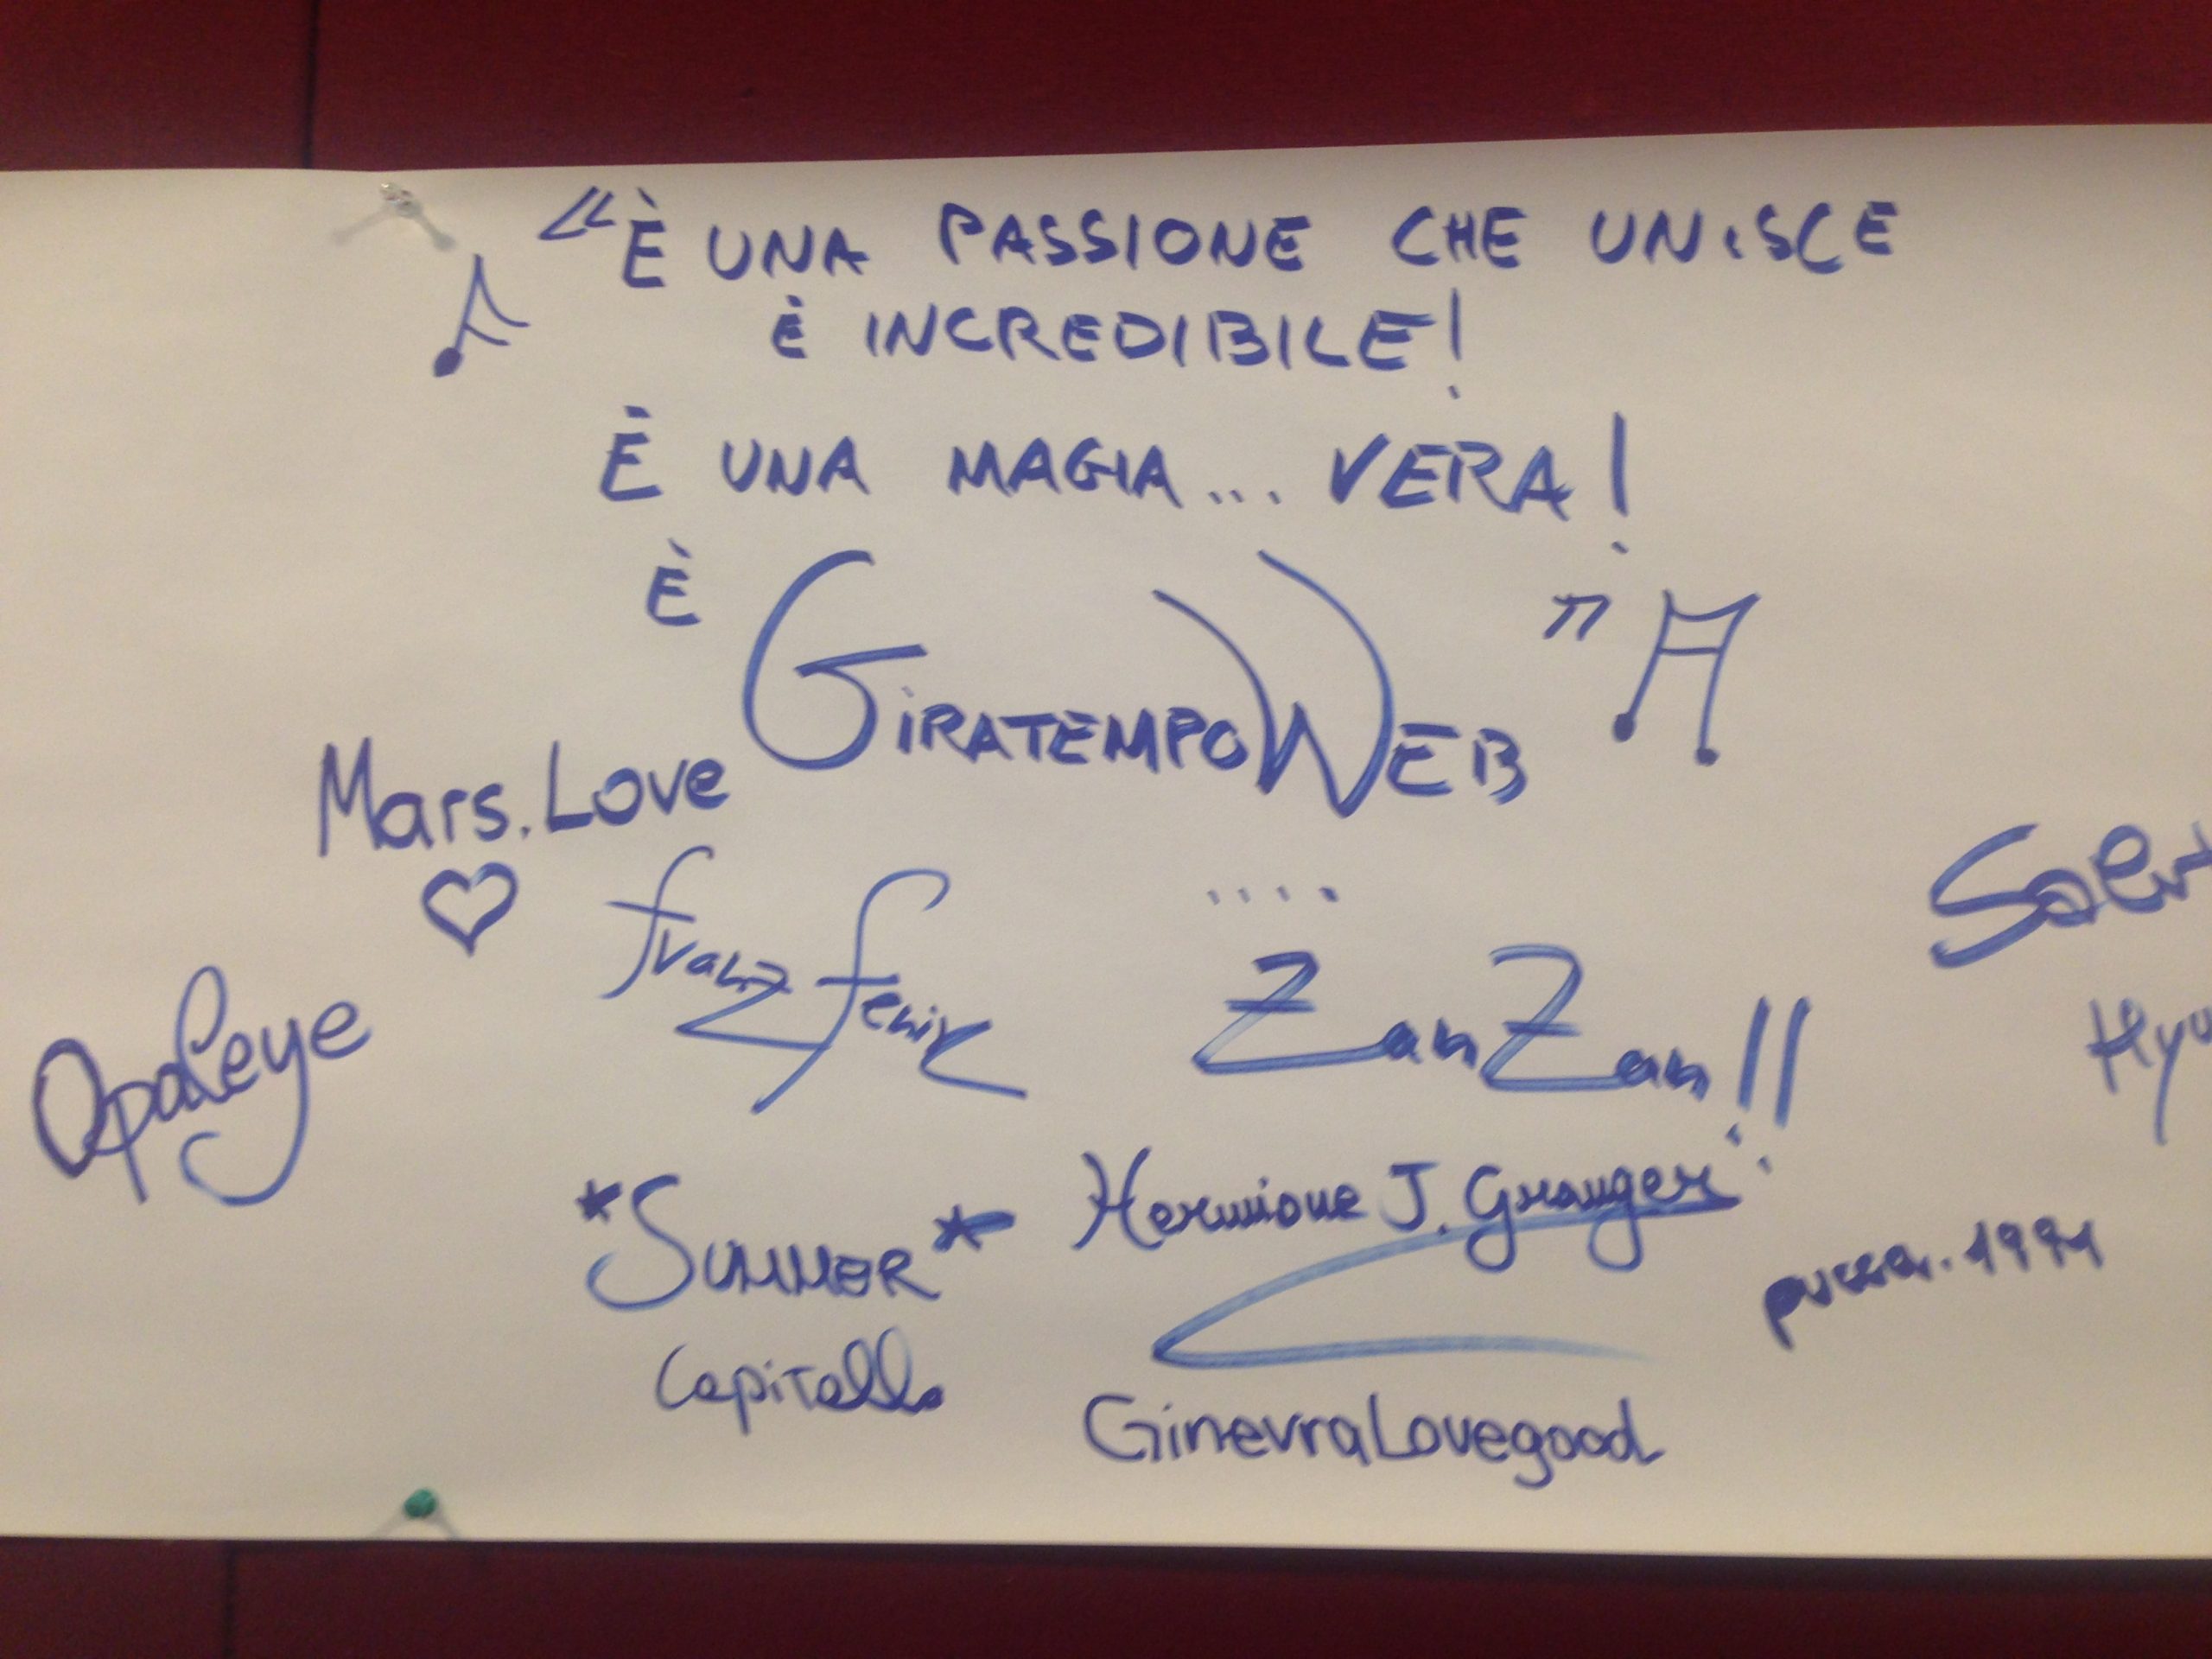 "È UNA PASSIONE CHE UNISCE
È INCREDIBILE!
È UNA MAGIA... VERA!
È GIRATEMPOWEB"
Mars.Love
....
franz fenix
ZanZan!!
Opaleye
*SUMMER*
Hermione J. Granger
pucca.1991
Capitello
GinevraLovegood